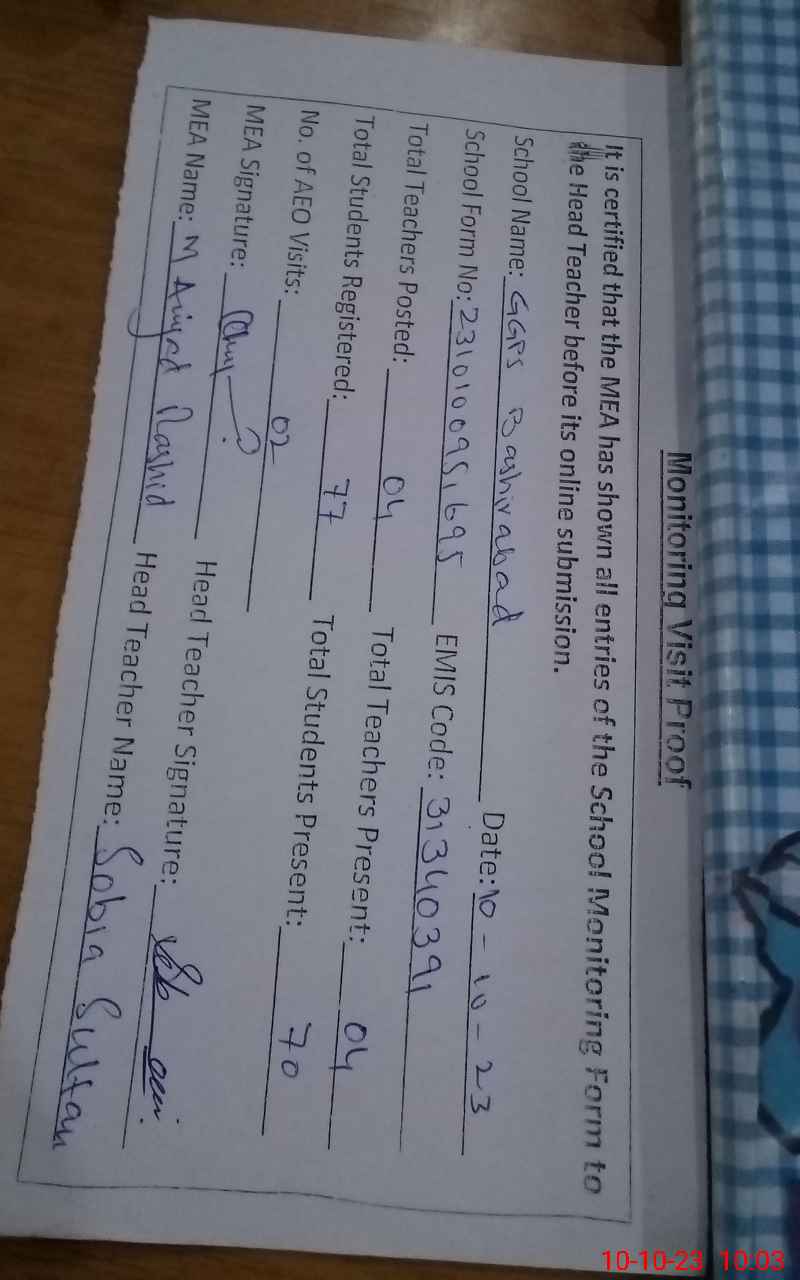 Monitoring Visit Proof
It is certified that the MEA has shown all entries of the School Monitoring Form to
the Head Teacher before its online submission.
School Name: GGPS Bashirabad Date: 10-10-23
School Form No: 231010095,695 EMIS Code: 31340391
Total Teachers Posted: 04 Total Teachers Present: 04
Total Students Registered: 77 Total Students Present: 70
No. of AEO Visits: 02
MEA Signature: Head Teacher Signature:
MEA Name: M Amjad Rashid Head Teacher Name: Sobia Sultan
10-10-23 10:03